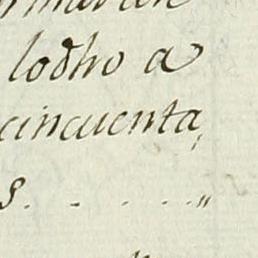 lodho a
cincuenta,
s. - . - . - "